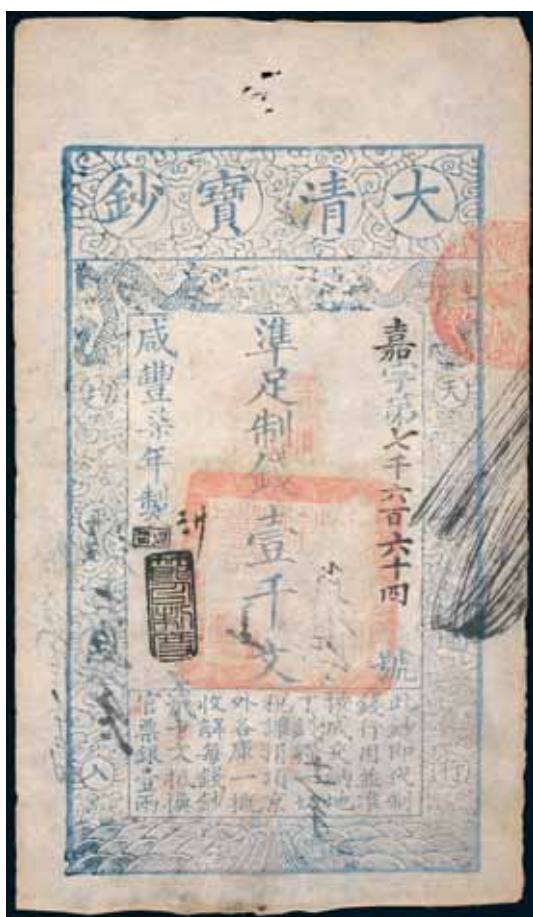 大清寶鈔
嘉字第七千六百六十四號
準足制錢壹千文
咸豐柒年製
此鈔即代制
錢行用並準
按成交納地
丁錢糧一切
稅課捐項京
外各庫一概
收解每錢鈔
貳千文抵換
官票銀壹兩
天
行
入